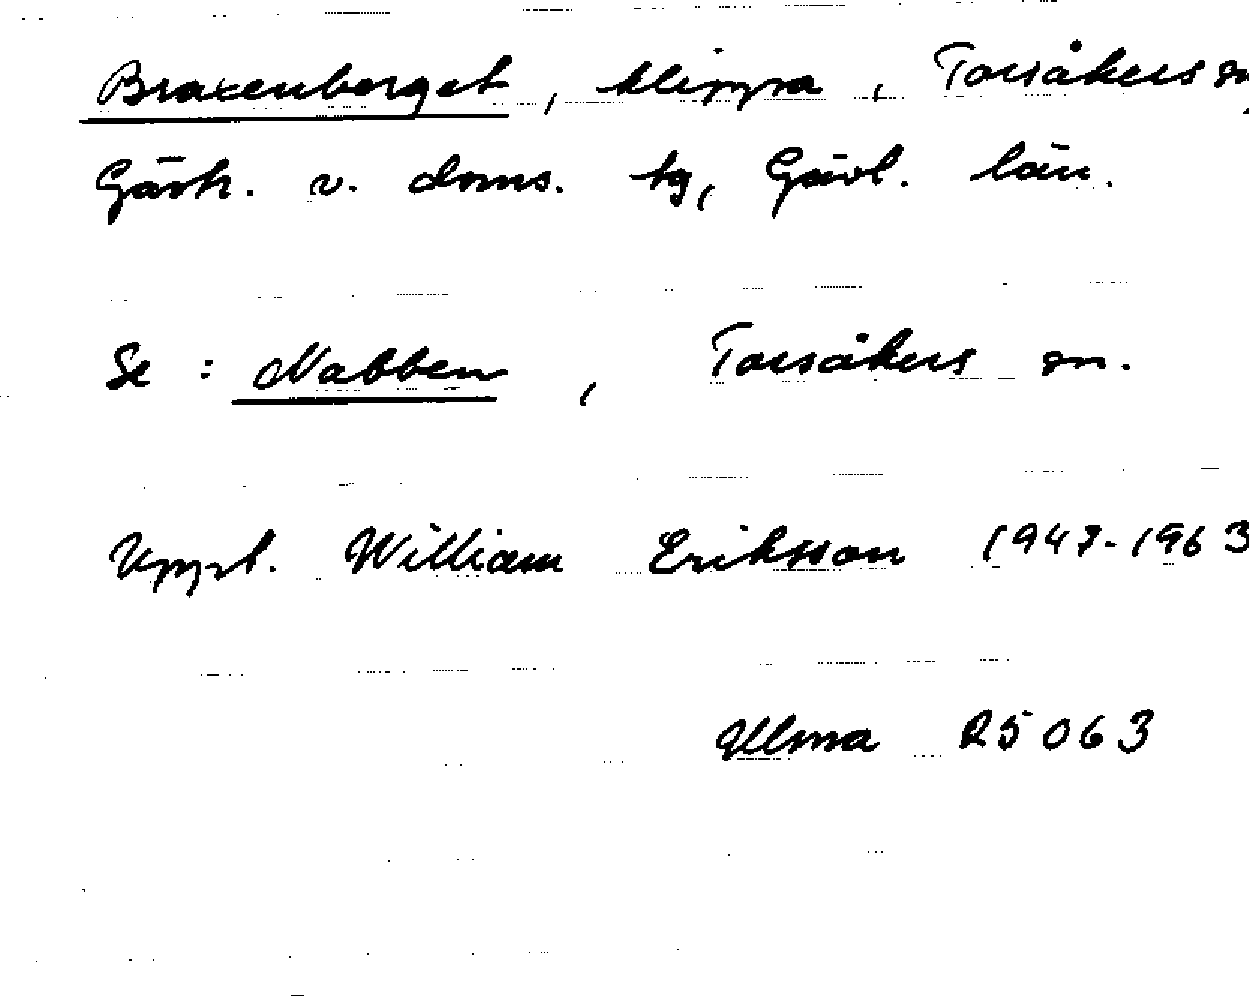 Braxenberget, klippa, Torsåkers sn,
Gästr. v. doms. tg, Gävl. län.
Se: Nabben, Torsåkers sn.
Uppt. William Eriksson 1947-1963
Ulma R5063